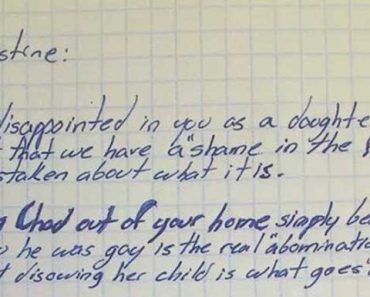 stine:
disappointed in you as a daughte
t that we have a "shame in the
staken about what it is.
g Chad out of your home simply be
he was gay is the real "abominatio
t disowing her child is what goes"